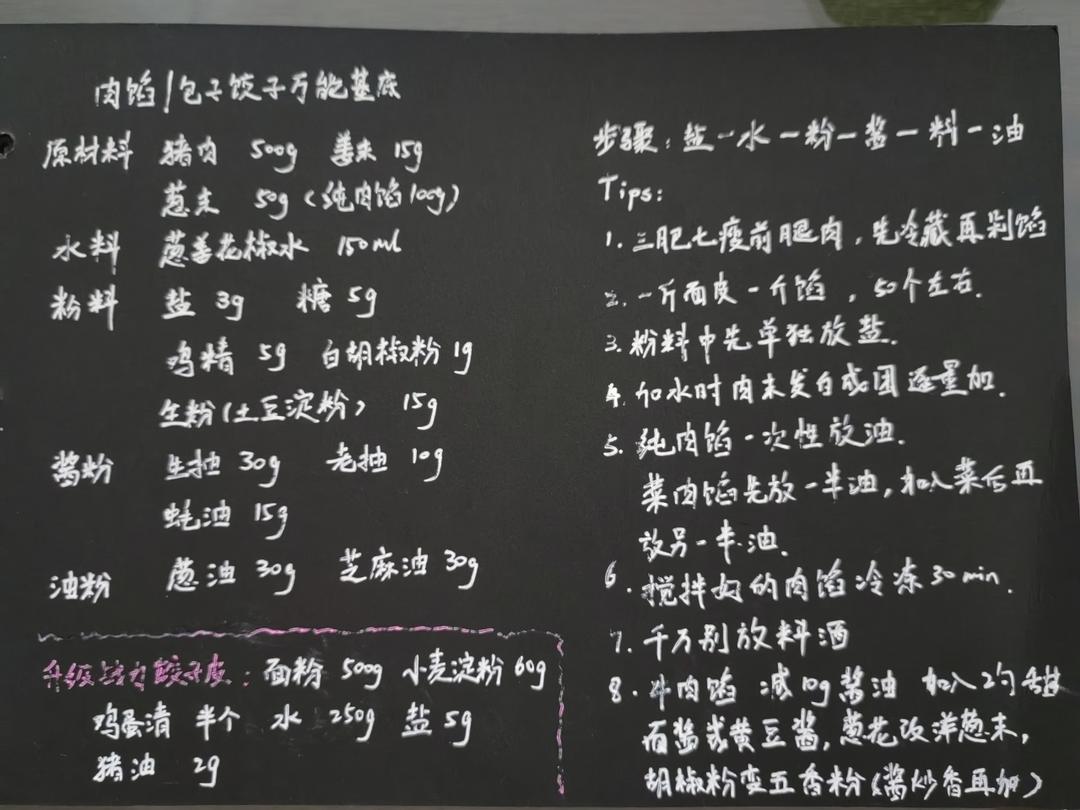 肉馅/包子饺子万能基底
原材料 猪肉 500g 姜末 15g
葱末 50g (纯肉馅100g)
水料 葱姜花椒水 150ml
粉料 盐 3g 糖 5g
鸡精 5g 白胡椒粉 1g
生粉(土豆淀粉) 15g
酱粉 生抽 30g 老抽 10g
蚝油 15g
油粉 葱油 30g 芝麻油 30g
升级活力饺子皮: 面粉 500g 小麦淀粉 60g
鸡蛋清 半个 水 250g 盐 5g
猪油 2g
步骤: 盐一水一粉一酱一料一油
Tips:
1. 三肥七瘦前腿肉, 先冷藏再剁馅
2. 一斤面皮一斤馅, 50个左右.
3. 粉料中先单独放盐.
4. 加水时肉末发白成团逐量加.
5. 纯肉馅一次性放油.
菜肉馅先放一半油, 加入菜后再
放另一半油.
6. 搅拌好的肉馅冷冻30min.
7. 千万别放料酒
8. 牛肉馅 减10g酱油 加入2勺甜
面酱或黄豆酱, 葱花改洋葱末,
胡椒粉变五香粉(酱炒香再加)